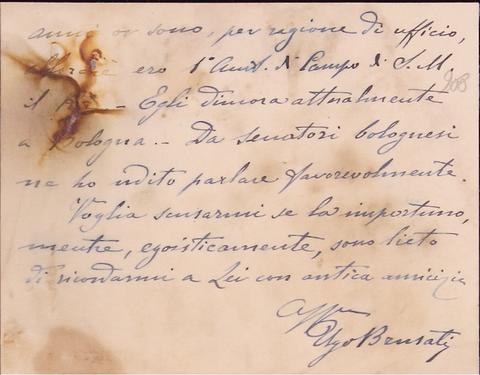 anni or sono, per ragione di ufficio,
ero 1° Aiut. di Campo di S. M.
il Re. - Egli dimora attualmente
a Bologna. - Da senatori bolognesi
ne ho udito parlare favorevolmente.
Voglia scusarmi se la importuno,
mentre, egoisticamente, sono lieto
di ricordarmi a Lei con antica amicizia
Aff
Ugo Brusati